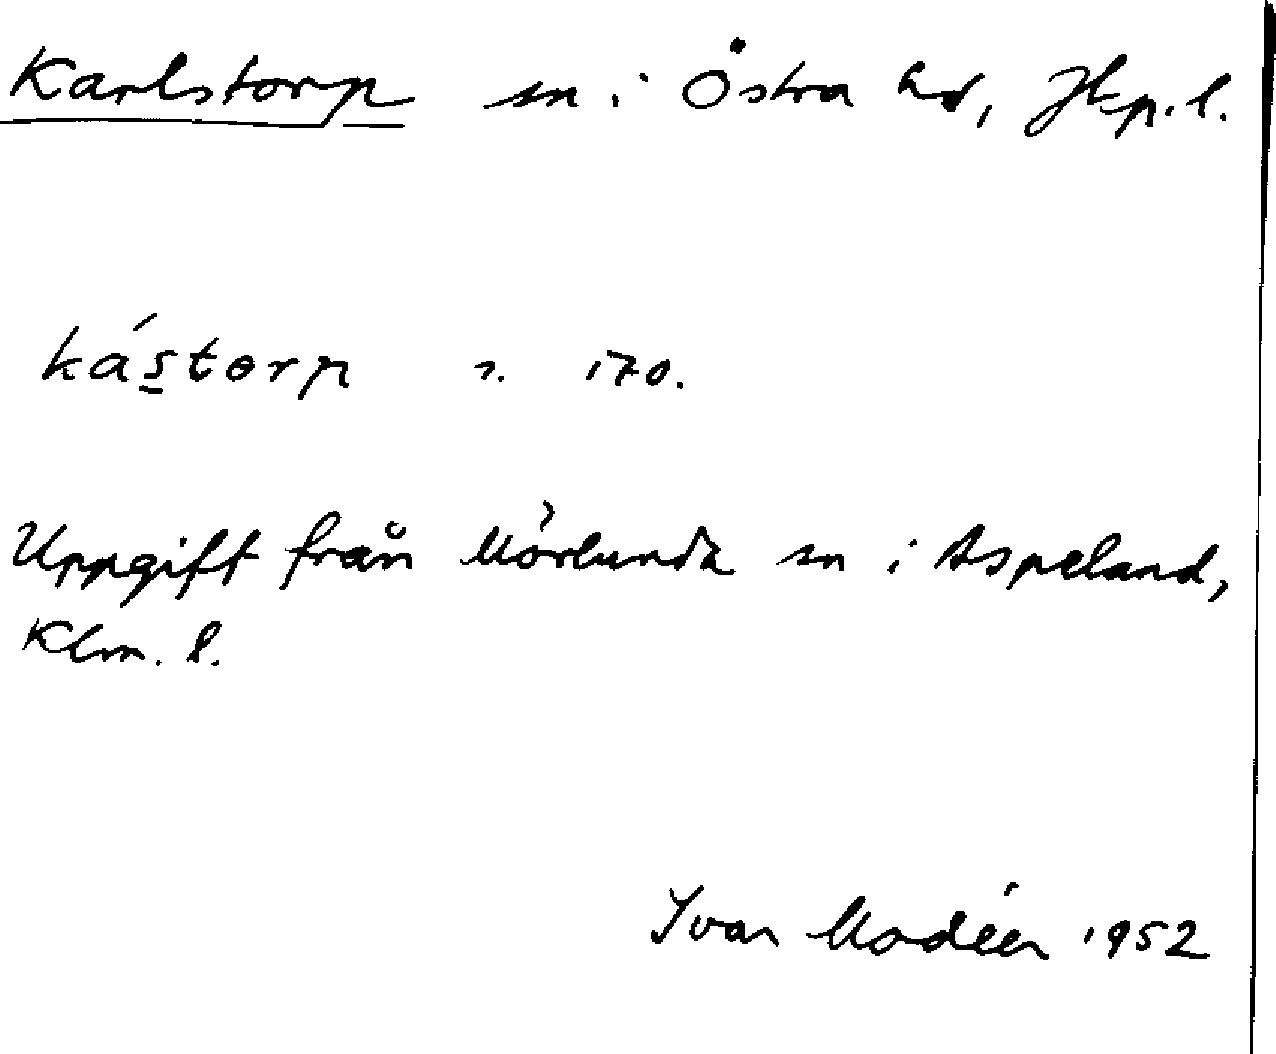 Karlstorp sn i Östra hd, Jkp.l.
kás̲torp s. 170.
Uppgift från Mörlunda sn i Aspeland,
Klm. l.
Ivar Modéer 1952